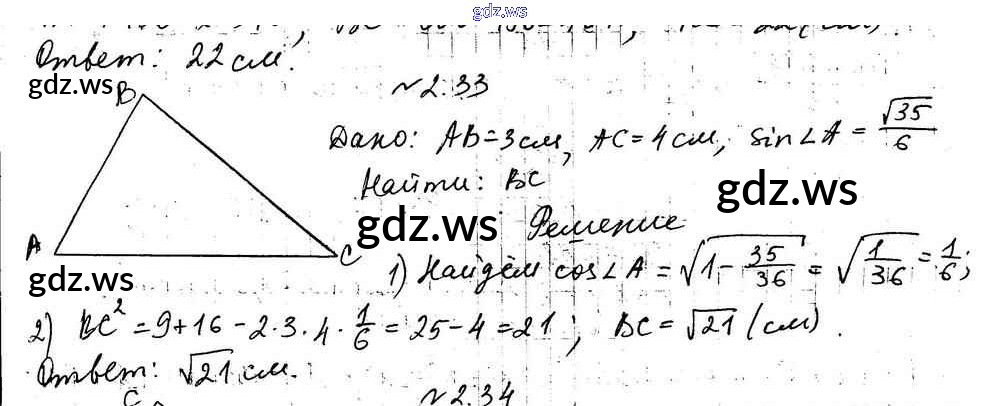 gdz.ws
Ответ: 22 см.
gdz.ws
№2.33
B
Дано: AB=3см, AC=4см, sin∠A = √35/6
Найти: BC
gdz.ws
gdz.ws
Решение
A
C
gdz.ws
1) Найдём cos∠A = √(1-35/36) = √(1/36) = 1/6;
2) BC² = 9+16-2·3·4·1/6 = 25-4=21; BC=√21 (см).
Ответ: √21 см.
C
№2.34